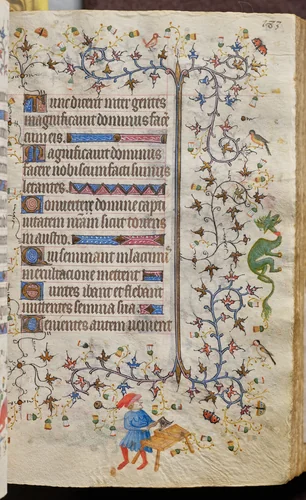 Tunc dicent inter gentes
magnificauit dominus face
cum eis
Magnificauit dominus
facere nobiscum facti sumus
letantes
Conuertere domine capti
uitatem nr̃am sicut torrens
in austro
Qui seminant in lacrimis
in exultacione metent
Euntes ibant et flebant
mittentes semina sua
Uenientes autem uenient